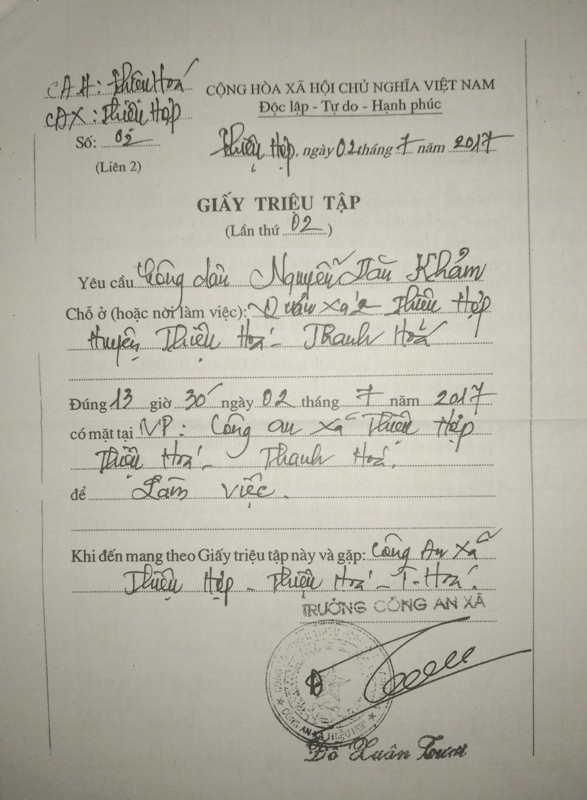 CAH: Thiệu Hoá
CAX: Thiệu Hợp
Số: 02
(Liên 2)
CỘNG HÒA XÃ HỘI CHỦ NGHĨA VIỆT NAM
Độc lập - Tự do - Hạnh phúc
Thiệu Hợp, ngày 02 tháng 7 năm 2017
GIẤY TRIỆU TẬP
(Lần thứ 02)
Yêu cầu Công dân Nguyễn Khảm
Chỗ ở (hoặc nơi làm việc): Thiệu Hợp
Huyện Thiệu Hoá - Thanh Hoá
Đúng 13 giờ 30 ngày 02 tháng 7 năm 2017
có mặt tại VP: Công an xã Thiệu Hợp
Thiệu Hoá - Thanh Hoá.
để Làm việc.
Khi đến mang theo Giấy triệu tập này và gặp: Công An xã
Thiệu Hợp - Thiệu Hoá - T-Hoá.
TRƯỞNG CÔNG AN XÃ
CÔNG AN XÃ THIỆU HỢP
Đỗ Xuân